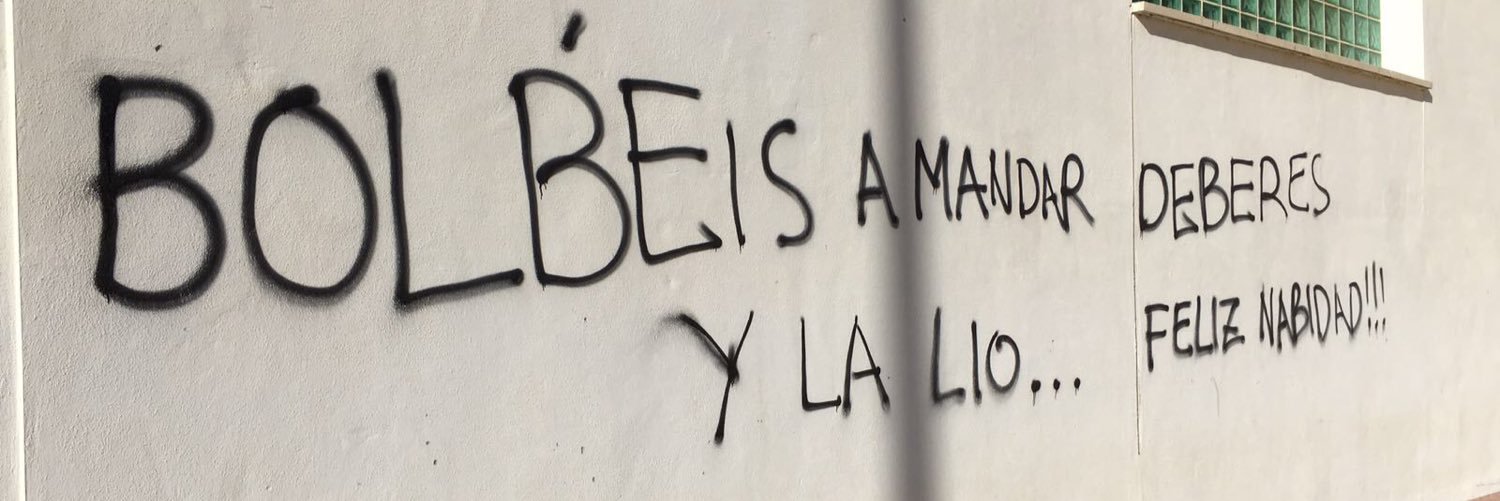 BOLBÉIS A MANDAR DEBERES
Y LA LIO... FELIZ NABIDAD!!!